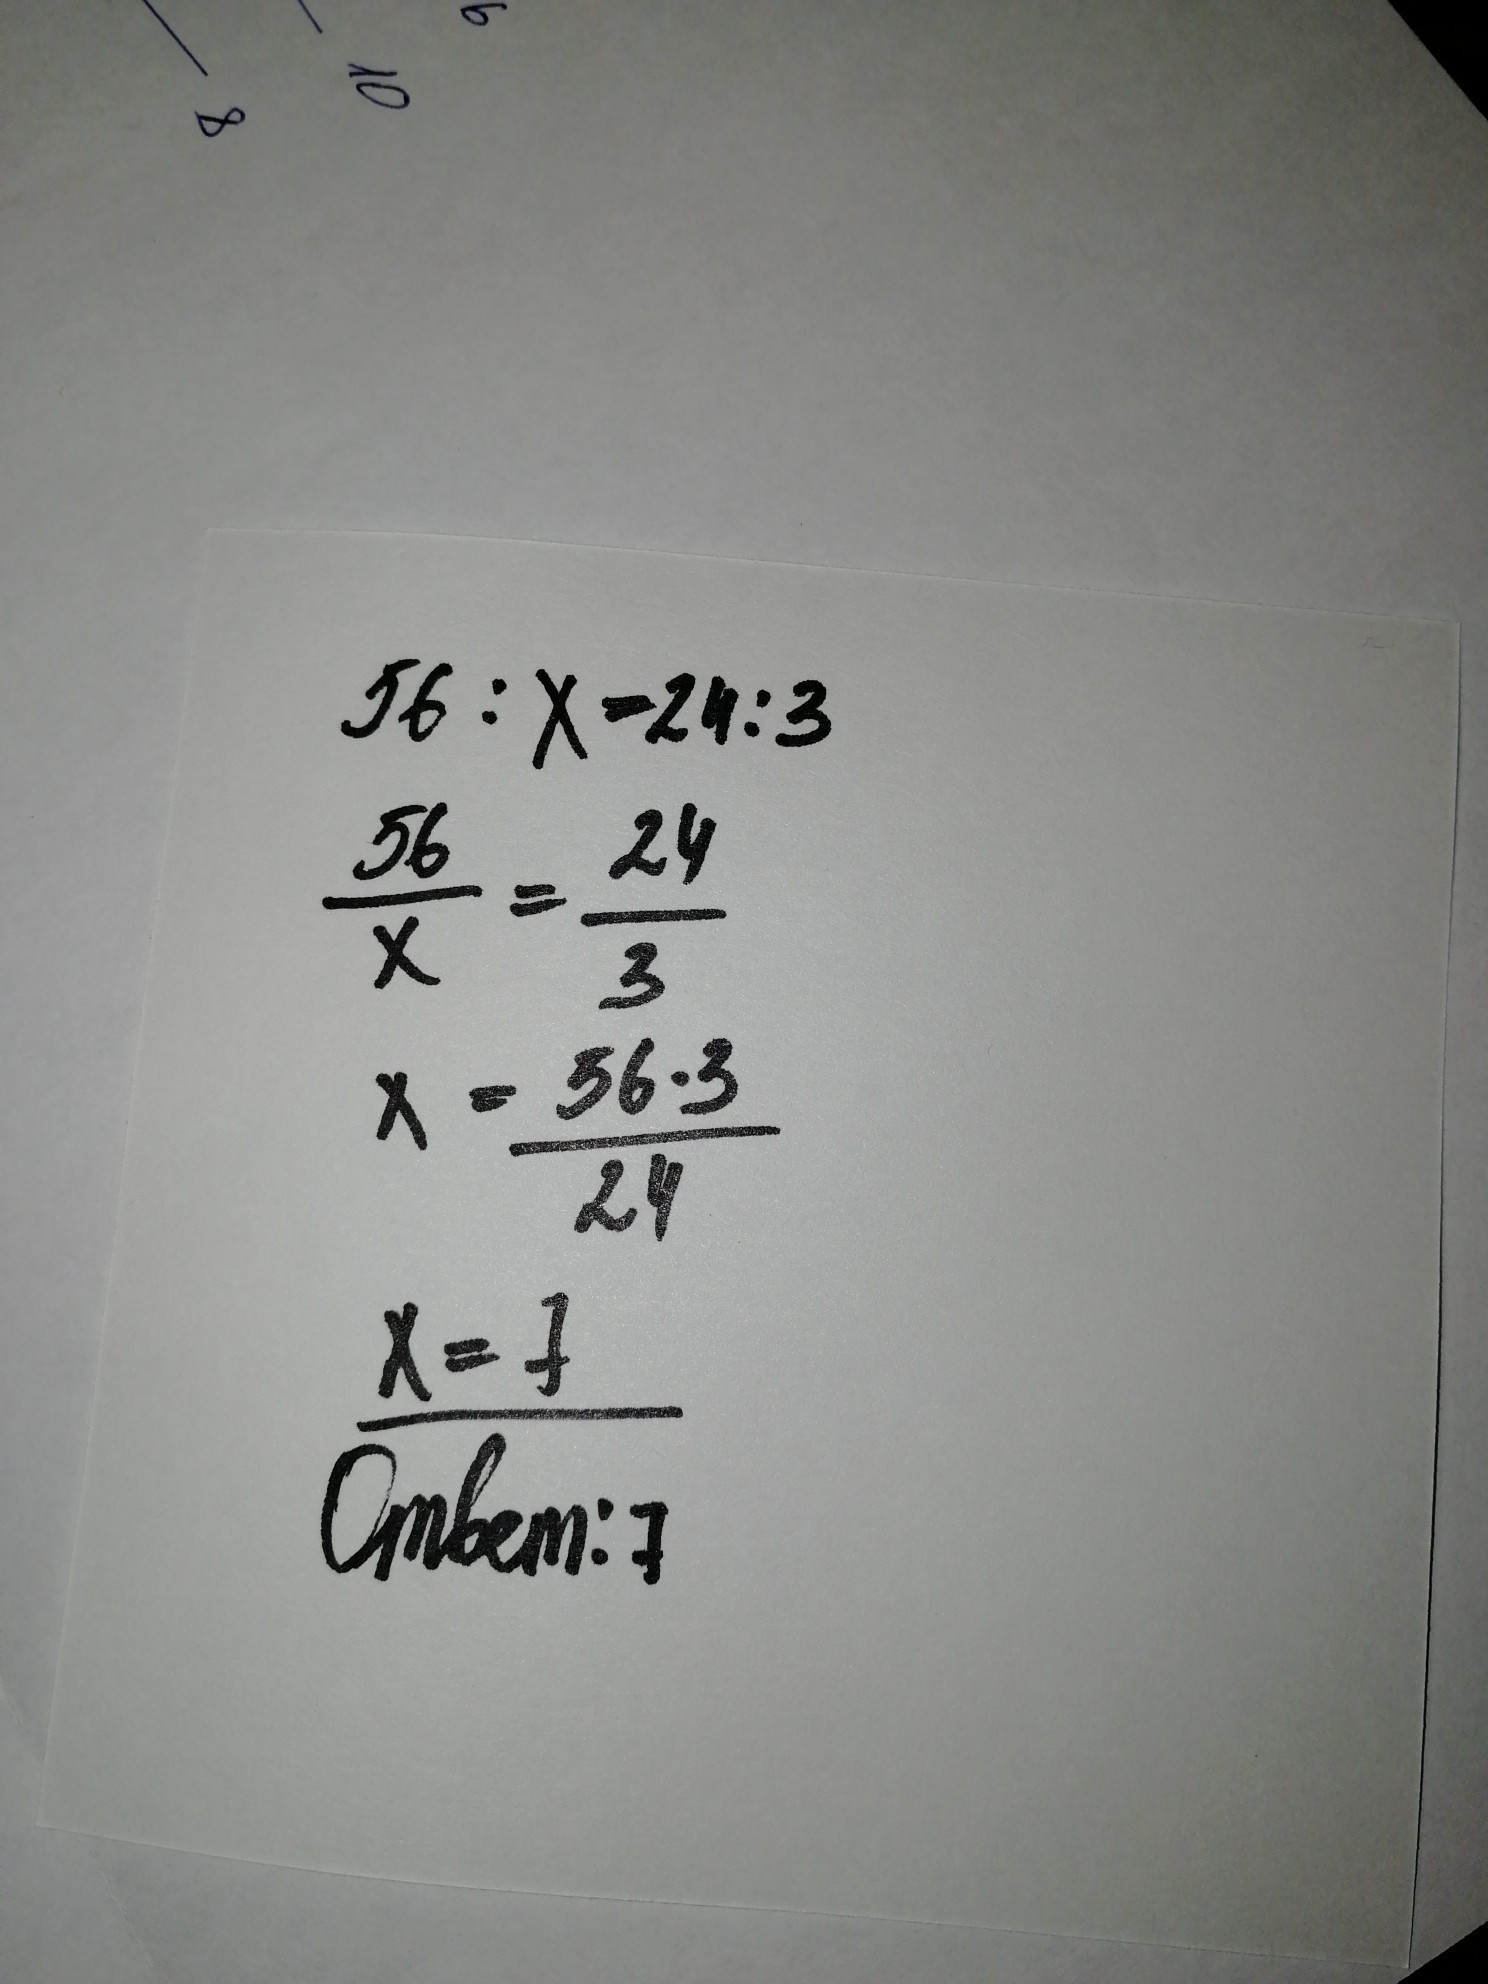 8 10 9
56 : x = 24 : 3
56/x = 24/3
x = 56·3/24
x = 7
Ответ: 7